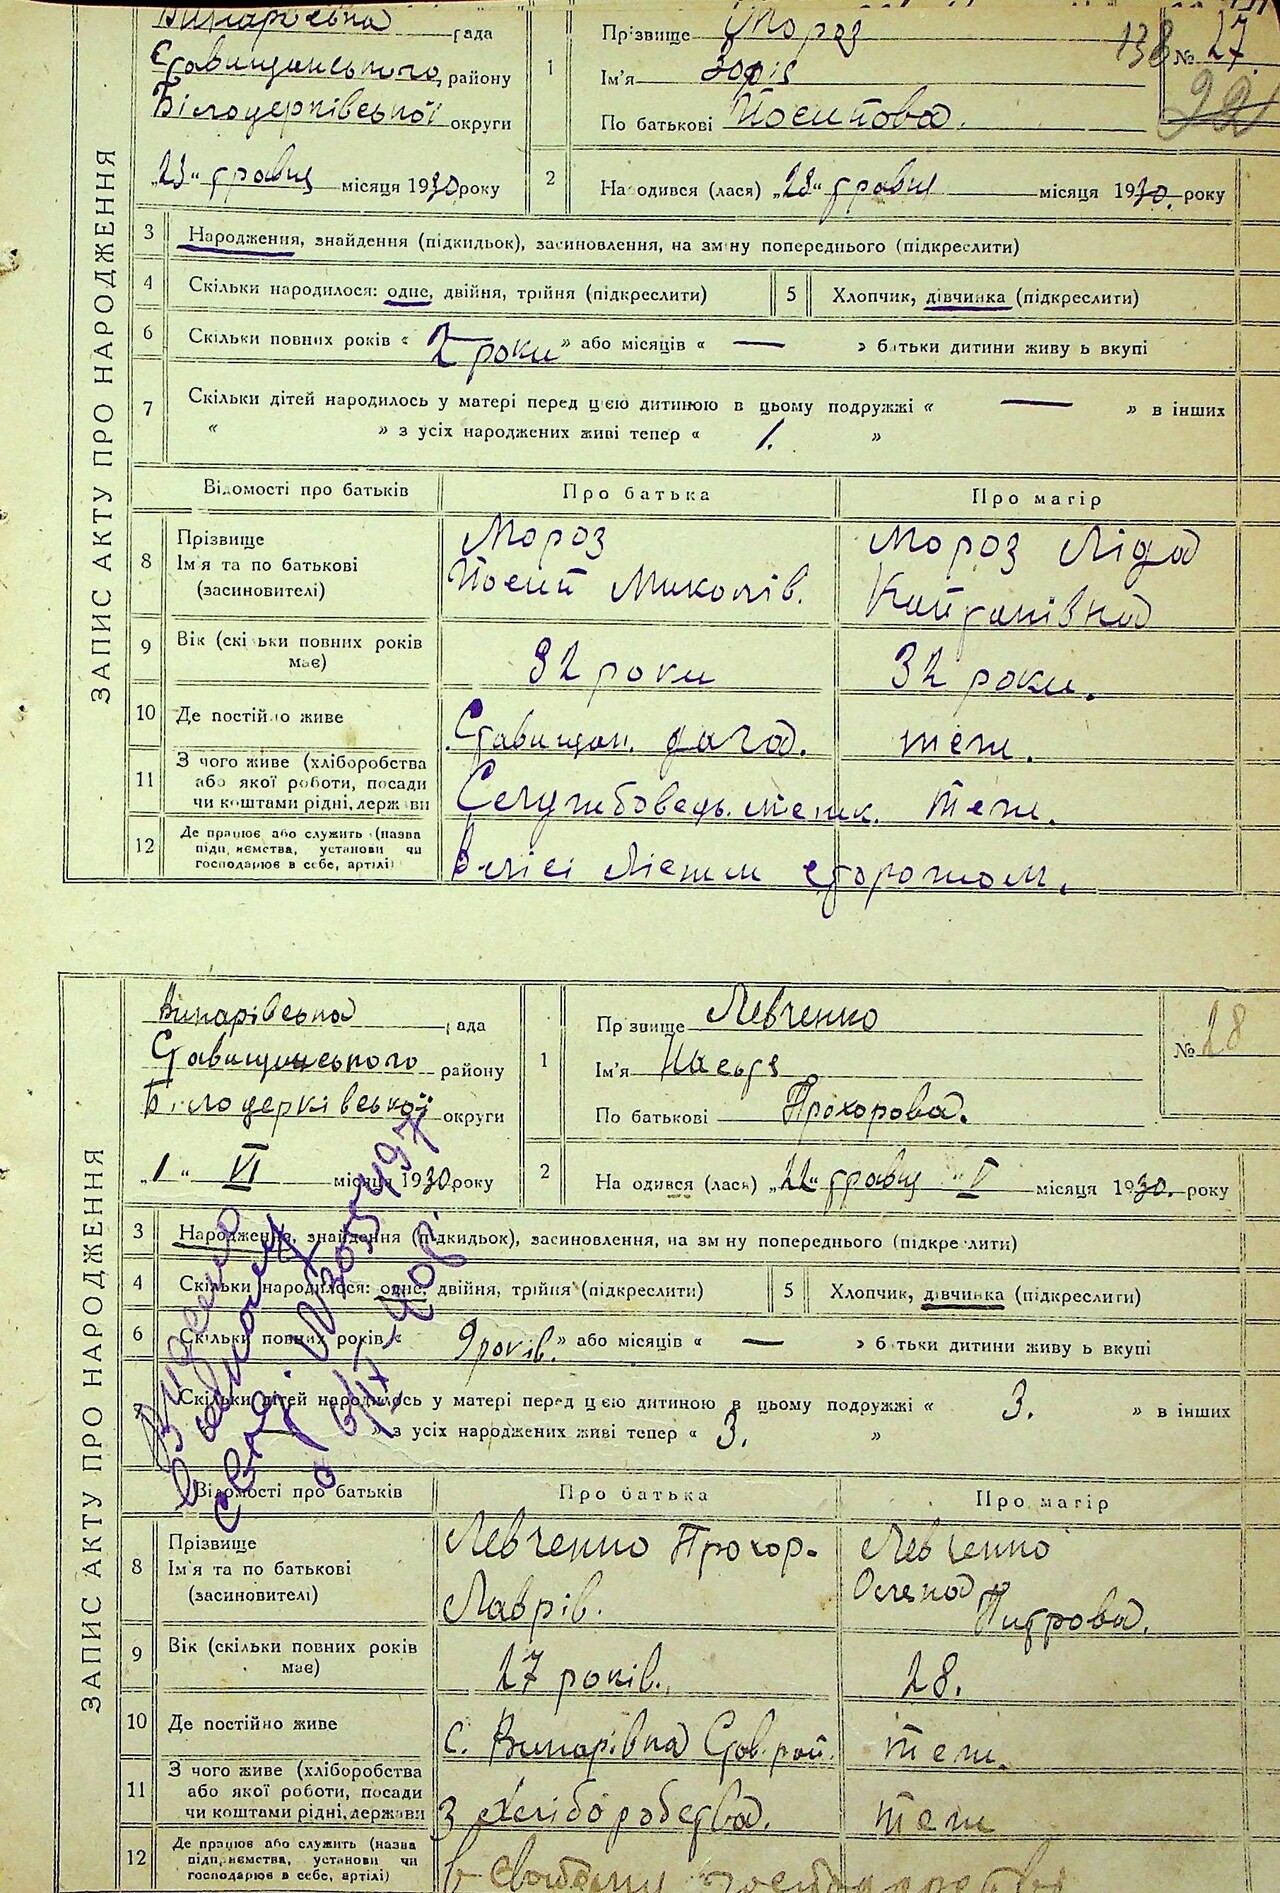 ЗАПИС АКТУ ПРО НАРОДЖЕННЯ
Винарівська рада
Ставищанського району
Білоцерківської округи
1 Прізвище Мороз
Ім'я Зофія
По батькові Йосипова.
138 № 27.
„23“ травня місяця 1930 року
2 На одився (лася) „23“ травня місяця 1930. року
3 Народження, знайдення (підкидьок), засиновлення, на зміну попереднього (підкреслити)
4 Скільки народилося: одне, двійня, трійня (підкреслити)
5 Хлопчик, дівчинка (підкреслити)
6 Скільки повних років « 2 роки » або місяців « — » батьки дитини живуть вкупі
7 Скільки дітей народилось у матері перед цією дитиною в цьому подружжі « — » в інших
« » з усіх народжених живі тепер « 1. »
Відомості про батьків Про батька Про матір
8 Прізвище
Ім'я та по батькові
(засиновителі)
Мороз
Йосип Миколів.
Мороз Ліда
9 Вік (скільки повних років має) 32 роки 32 роки.
10 Де постійно живе Ставищан. дача. теж.
11 З чого живе (хліборобства
або якої роботи, посади
чи коштами рідні, держави
теж.
12 Де працює або служить (назва
підприємства, установи чи
господарює в себе, артілі)
В лісі лісним сторожом.
ЗАПИС АКТУ ПРО НАРОДЖЕННЯ
Винарівська рада
Ставищанського району
Білоцерківської округи
1 Прізвище Левченко
Ім'я Настя
По батькові Прохорова.
№ 28
„1“ VI місяця 1930. року
2 На одився (лася) „22“ травня „V місяця 1930. року
3 Народження, знайдення (підкидьок), засиновлення, на зміну попереднього (підкреслити)
4 Скільки народилося: одне, двійня, трійня (підкреслити)
5 Хлопчик, дівчинка (підкреслити)
6 Скільки повних років « 9 років. » або місяців « — » батьки дитини живуть вкупі
7 Скільки дітей народилось у матері перед цією дитиною в цьому подружжі « 3. » в інших
» з усіх народжених живі тепер « 3. »
Відомості про батьків Про батька Про матір
8 Прізвище
Ім'я та по батькові
(засиновителі)
Левченко Прохор.
Лаврів.
Левченко
Олена
Петрова.
9 Вік (скільки повних років має) 27 років. 28.
10 Де постійно живе с. Винарівка Став. рай. теж.
11 З чого живе (хліборобства
або якої роботи, посади
чи коштами рідні, держави
З хліборобства. теж
12 Де працює або служить (назва
підприємства, установи чи
господарює в себе, артілі)
в своєму господарстві